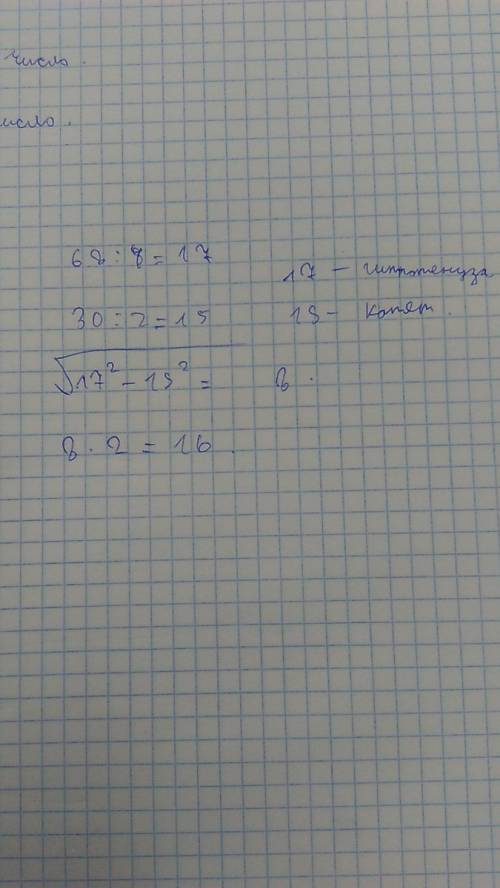 число.
исло.
68 : 8 = 17
17 – гипотенуза
30 : 2 = 15
15 – катет.
√17² – 15² = 8.
8 · 2 = 16.